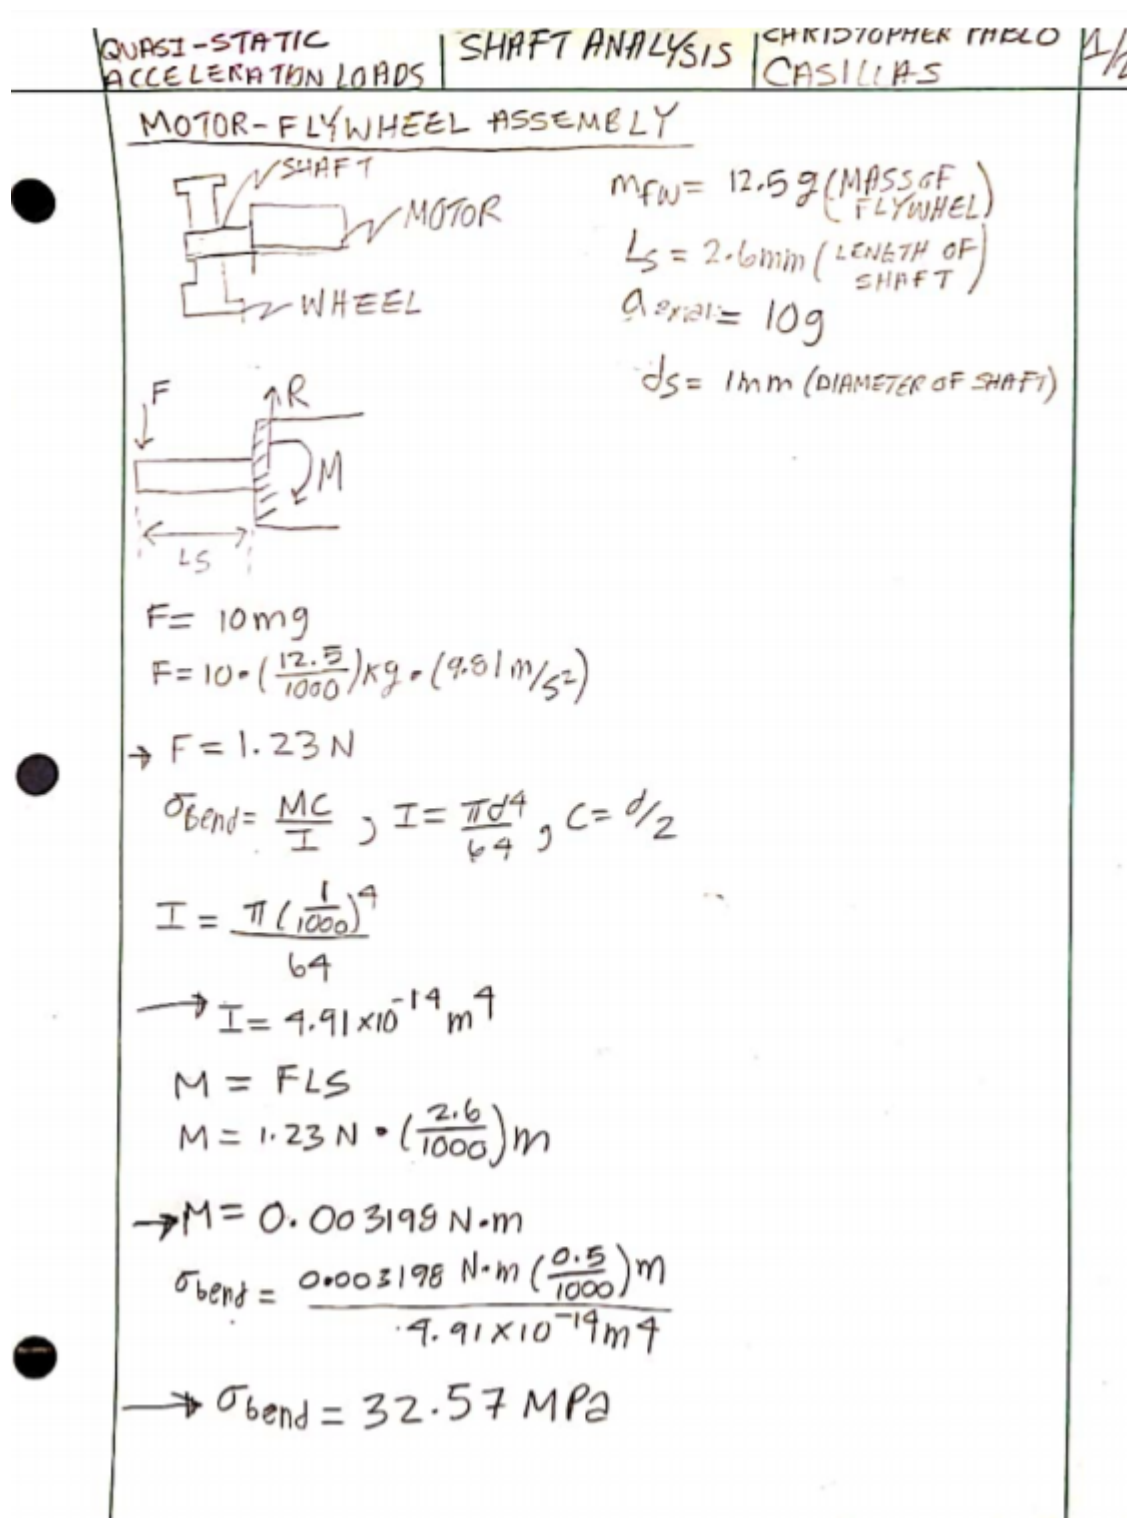 QUASI-STATIC
ACCELERATION LOADS
SHAFT ANALYSIS
CHRISTOPHER PABLO
CASILLAS
MOTOR-FLYWHEEL ASSEMBLY
SHAFT
MOTOR
WHEEL
mFW = 12.5g (MASS OF FLYWHEL)
Ls = 2.6mm (LENGTH OF SHAFT)
a axial = 10g
ds = 1mm (DIAMETER OF SHAFT)
F
R
M
LS
F = 10mg
F = 10 • (12.5/1000)kg • (9.81 m/s²)
→ F = 1.23 N
σbend = MC/I , I = πd⁴/64 , C = d/2
I = π(1/1000)⁴/64
→ I = 4.91 x10⁻¹⁴ m⁴
M = FLS
M = 1.23 N • (2.6/1000)m
→ M = 0.003198 N•m
σbend = 0.003198 N•m (0.5/1000)m / 4.91 x 10⁻¹⁴ m⁴
→ σbend = 32.57 MPa